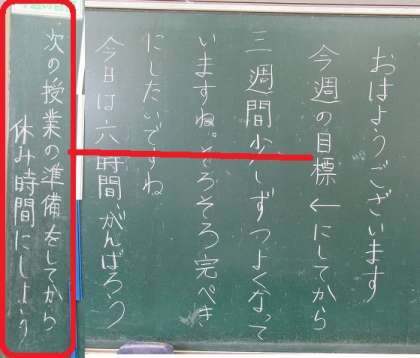 おはようございます
今週の目標←にしてから
三週間少しずつよくなって
いますね。そろそろ完ぺき
にしたいですね
今日は六時間、がんばろう
次の授業の準備をしてから
休み時間にしよう